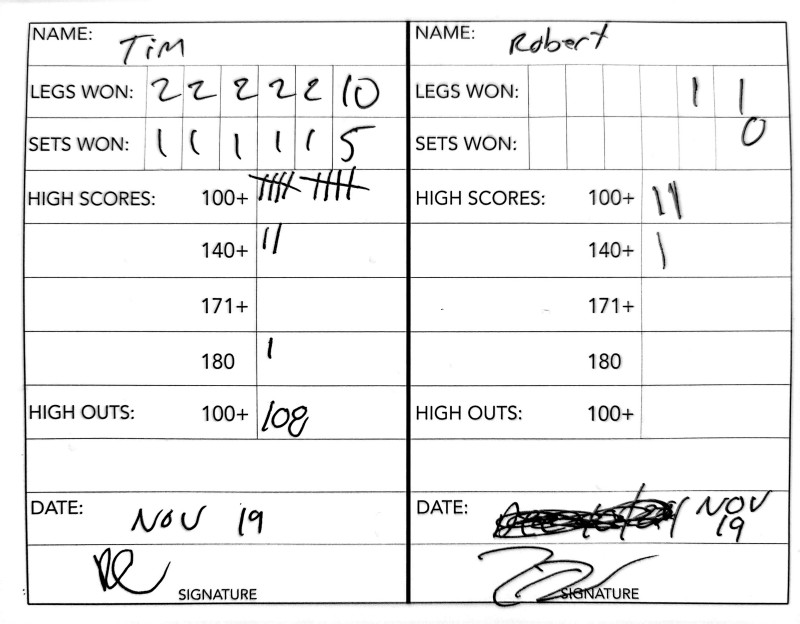 NAME: Tim
LEGS WON: 2 2 2 2 2 10
SETS WON: 1 1 1 1 1 5
HIGH SCORES: 100+ |||| ||||
140+ ||
171+
180 |
HIGH OUTS: 100+ 108
DATE: NOV 19
SIGNATURE
NAME: Robert
LEGS WON: 1 1
SETS WON: 0
HIGH SCORES: 100+ |||
140+ |
171+
180
HIGH OUTS: 100+
DATE: NOV
19
SIGNATURE